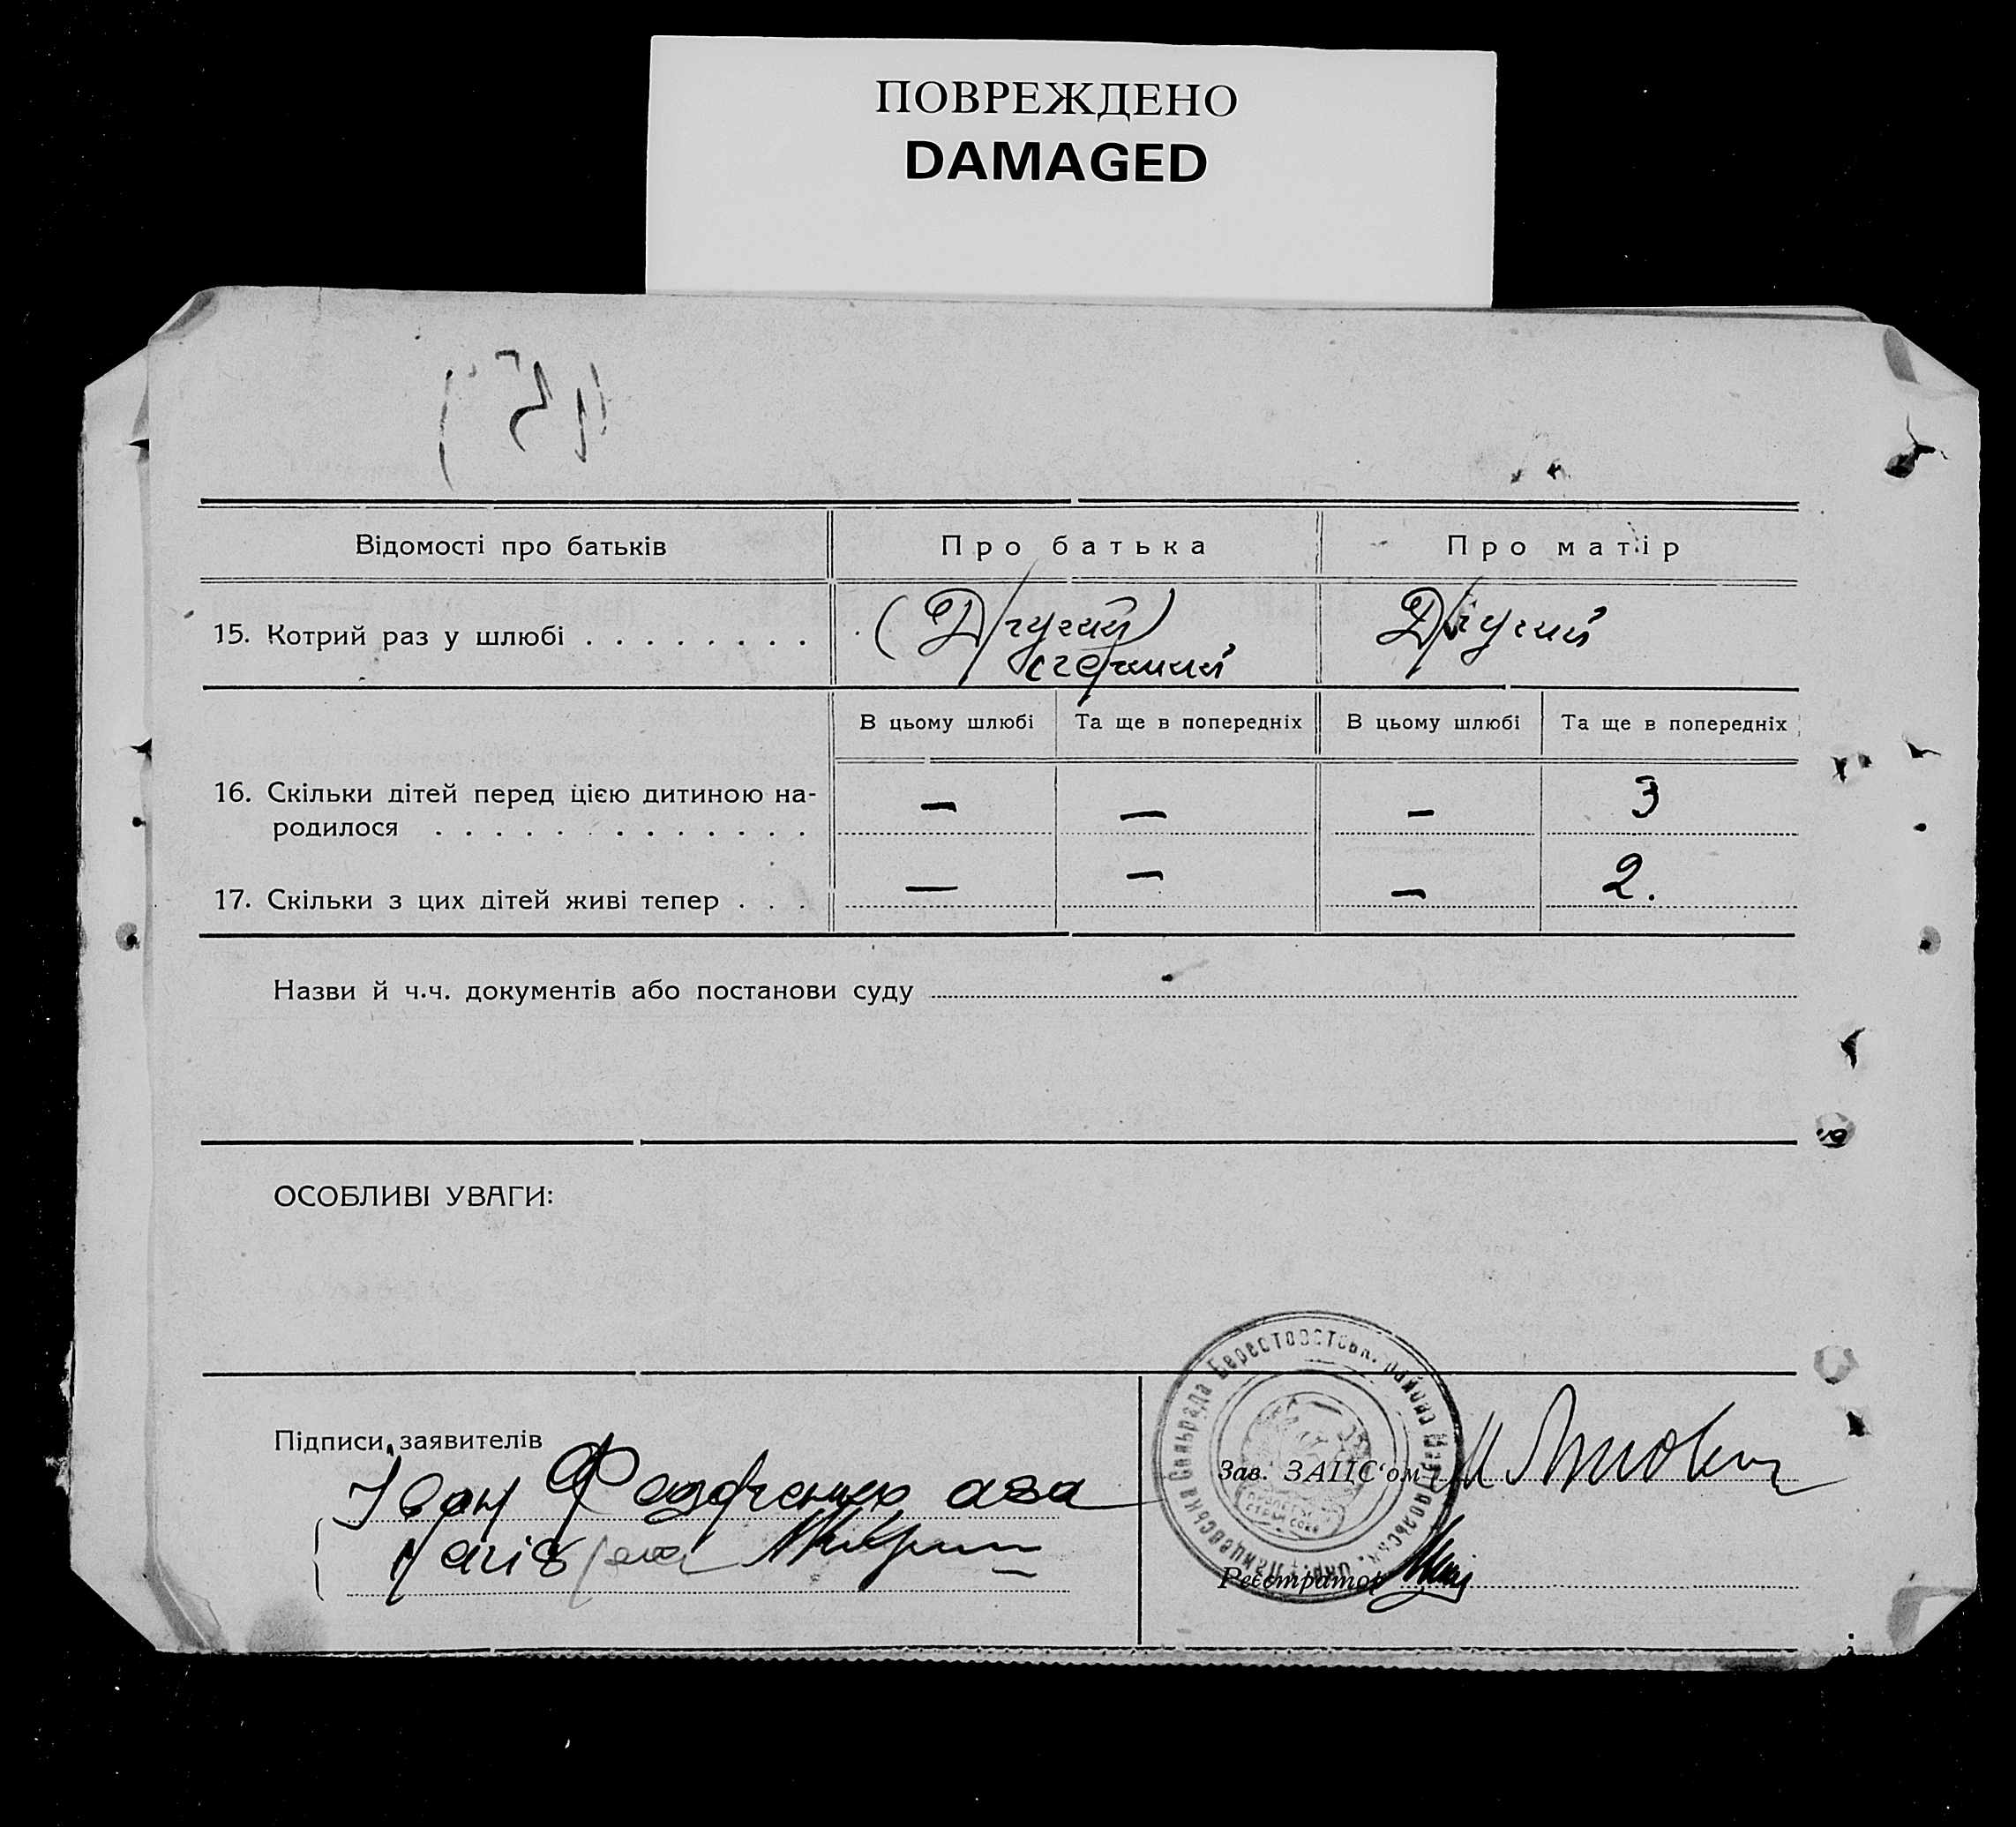 ПОВРЕЖДЕНО
DAMAGED
Відомості про батьків
Про батька
Про матір
15. Котрий раз у шлюбі . . . . . . . .
(Другий)
Другий
В цьому шлюбі
Та ще в попередніх
В цьому шлюбі
Та ще в попередніх
16. Скільки дітей перед цією дитиною на-
родилося . . . . . . . . . . . . .
— — — 3
17. Скільки з цих дітей живі тепер . . .
— — — 2.
Назви й ч.ч. документів або постанови суду
ОСОБЛИВІ УВАГИ:
Підписи заявителів
Іван
Зав. ЗАПС‘ом
Реєстратор
сільрада Берестоватськ. району Маріюпольськ. окр.